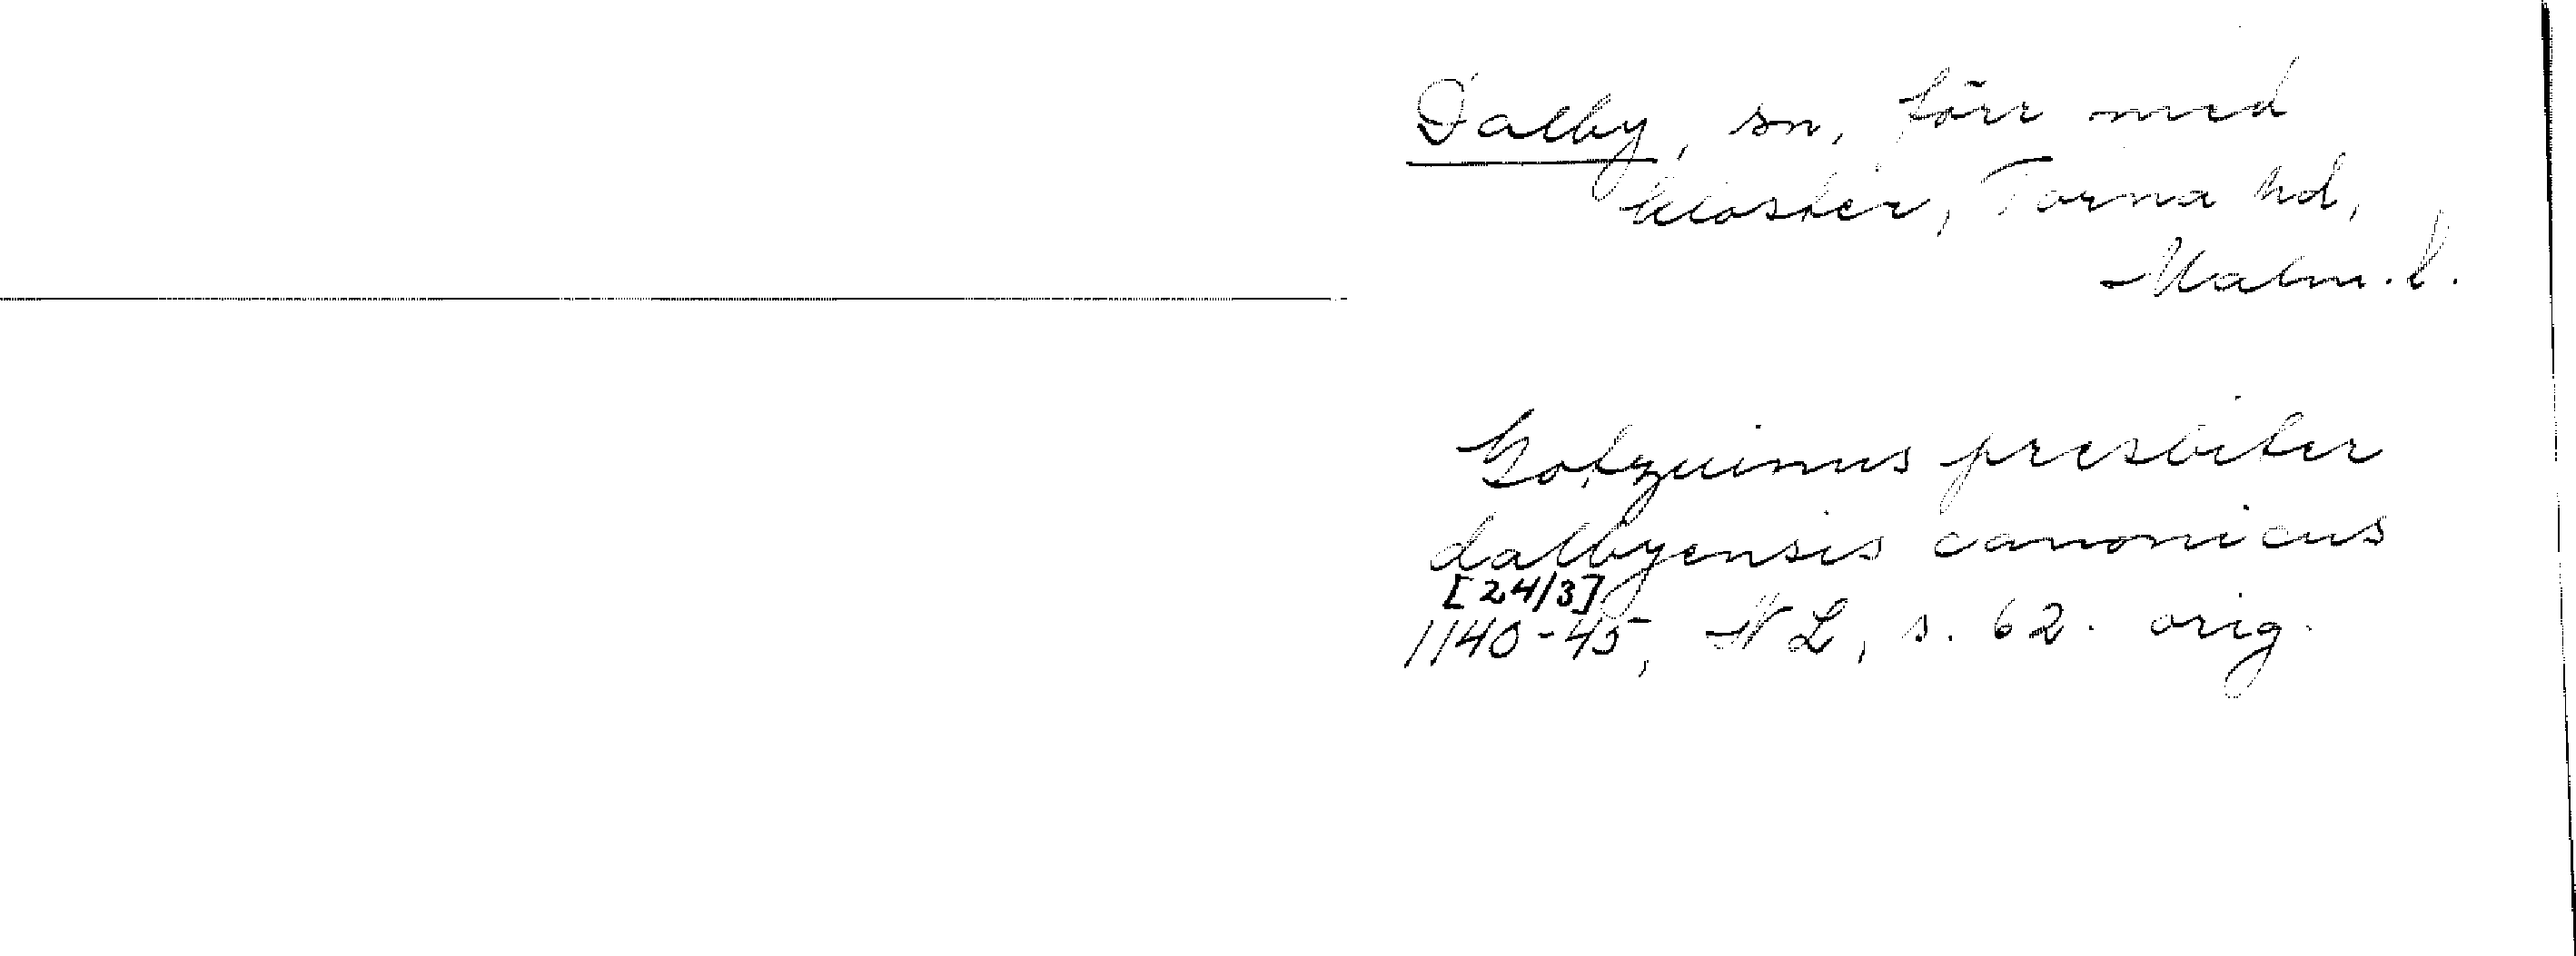 Dalby, sn, förr med
kloster, Torna hd,
Malm. l.
Gotzuinus presbiter
dalbyensis canonicus
[24/3]
1140-45, NL, s. 62. orig.